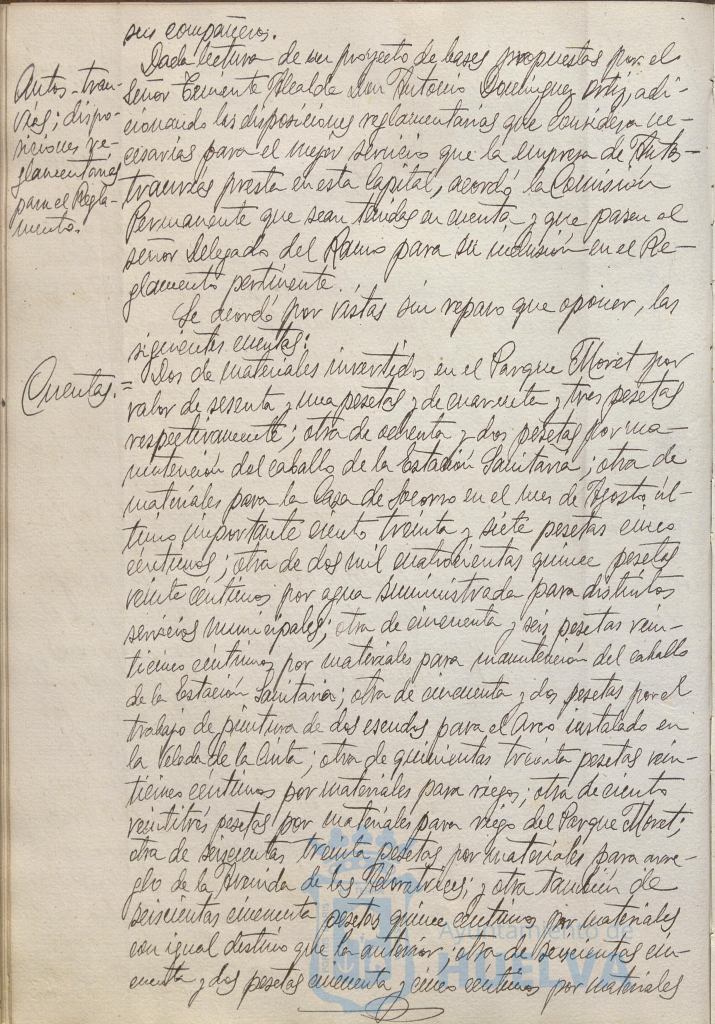 sus compañeros.
Autos-tran-
vías; dispo-
siciones re-
glamentarias
para el Regla-
mento.
Dada lectura de un proyecto de bases propuestas por el
señor Teniente Alcalde don Antonio Domínguez Ortiz, adi-
cionando las disposiciones reglamentarias que considera ne-
cesarias para el mejor servicio que la empresa de Autos-
tranvías presta en esta Capital, acordó la Comisión
Permanente que sean tenidas en cuenta y que pasen al
señor Delegado del Ramo para su inclusión en el Re-
glamento pertinente.
Se acordó por vistas sin reparo que oponer, las
siguientes cuentas:
Cuentas.=
Dos de materiales invertidos en el Parque Moret por
valor de sesenta y una pesetas y de cuarenta y tres pesetas
respectivamente; otra de ochenta y dos pesetas por ma-
nutención del caballo de la Estación Sanitaria; otra de
materiales para la Casa de Socorro en el mes de Agosto úl-
timo importante ciento treinta y siete pesetas cinco
céntimos; otra de dos mil cuatrocientas quince pesetas
veinte céntimos por agua suministrada para distintos
servicios municipales; otra de cincuenta y seis pesetas vein-
ticinco céntimos por materiales para manutención del caballo
de la Estación Sanitaria; otra de cincuenta y dos pesetas por el
trabajo de pintura de dos escudos para el Arco instalado en
la Velada de la Cinta; otra de quinientas treinta pesetas vein-
ticinco céntimos por materiales para riegos; otra de ciento
veintitrés pesetas por materiales para riego del Parque Moret;
otra de seiscientas treinta pesetas por materiales para arre-
glo de la Avenida de las Adoratrices; y otra también de
seiscientas cincuenta pesetas quince céntimos por materiales
con igual destino que la anterior, otra de seiscientas cin-
cuenta y dos pesetas cincuenta y cinco céntimos por materiales
Ayuntamiento de
HUELVA